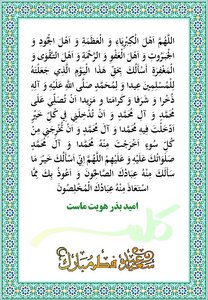 اللَّهُمَّ أَهْلَ الْكِبْرِيَاءِ وَ الْعَظَمَةِ وَ أَهْلَ الْجُودِ وَ
الْجَبَرُوتِ وَ أَهْلَ الْعَفْوِ وَ الرَّحْمَةِ وَ أَهْلَ التَّقْوَى وَ
الْمَغْفِرَةِ أَسْأَلُكَ بِحَقِّ هَذَا الْيَوْمِ الَّذِي جَعَلْتَهُ
لِلْمُسْلِمِينَ عِيدا وَ لِمُحَمَّدٍ صَلَّى اللَّهُ عَلَيْهِ وَ آلِهِ
ذُخْرا وَ شَرَفا وَ كَرَامَتا و مَزِيدا أَنْ تُصَلِّيَ عَلَى
مُحَمَّدٍ وَ آلِ مُحَمَّدٍ وَ أَنْ تُدْخِلَنِي فِي كُلِّ خَيْرٍ
أَدْخَلْتَ فِيهِ مُحَمَّدا وَ آلَ مُحَمَّدٍ وَ أَنْ تُخْرِجَنِي مِنْ
كُلِّ سُوءٍ أَخْرَجْتَ مِنْهُ مُحَمَّدا وَ آلَ مُحَمَّدٍ
صَلَوَاتُكَ عَلَيْهِ وَ عَلَيْهِمْ اللَّهُمَّ إِنِّي أَسْأَلُكَ خَيْرَ مَا
سَأَلَكَ مِنْهُ عِبَادُكَ الصَّالِحُونَ وَ أَعُوذُ بِكَ مِمَّا
اسْتَعَاذَ مِنْهُ عِبَادُكَ الْمُخْلِصُونَ
امید بذر هویت ماست
عید سعید فطر مبارک